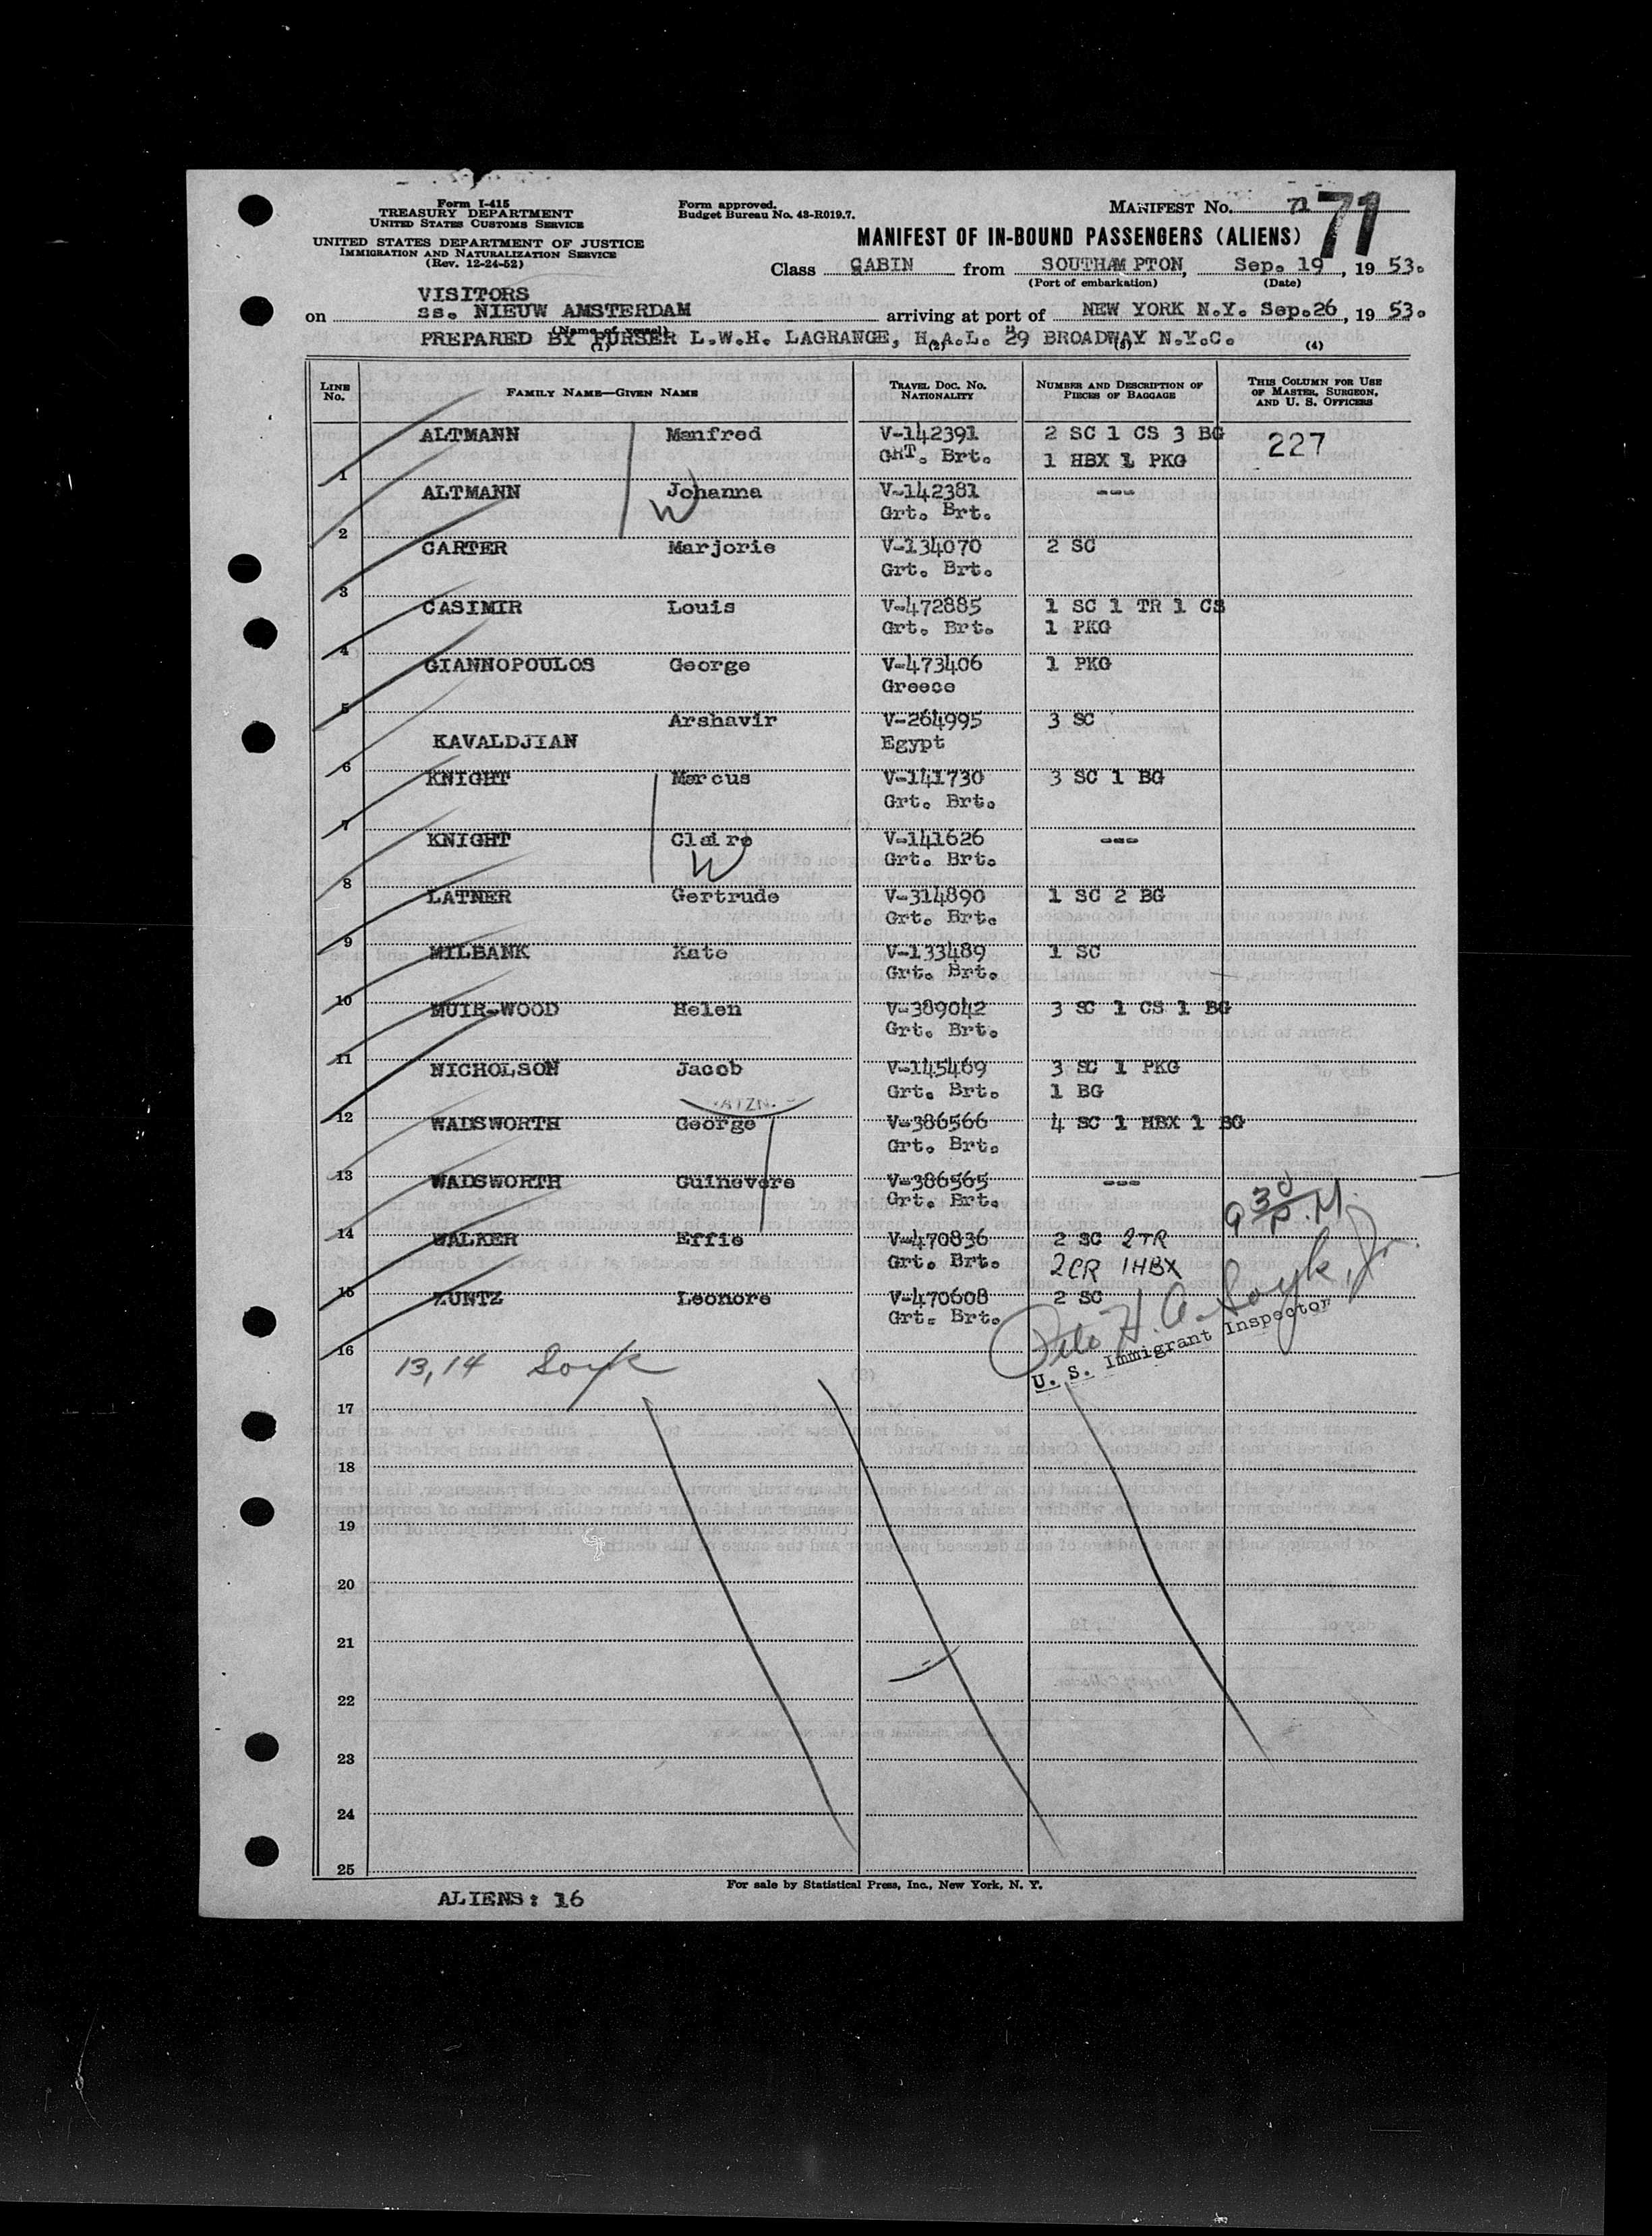 Form I-415
TREASURY DEPARTMENT
UNITED STATES CUSTOMS SERVICE
UNITED STATES DEPARTMENT OF JUSTICE
IMMIGRATION AND NATURALIZATION SERVICE
(Rev. 12-24-52)
Form approved.
Budget Bureau No. 43-R019.7.
MANIFEST No. 71 71
MANIFEST OF IN-BOUND PASSENGERS (ALIENS)
Class CABIN from SOUTHAMPTON, Sep. 19, 19 53.
(Port of embarkation) (Date)
VISITORS
on ss. NIEUW AMSTERDAM arriving at port of NEW YORK N.Y. Sep.26, 19 53.
(Name of vessel)
PREPARED BY PURSER L.W.H. LAGRANGE, H.A.L. 29 BROADWAY N.Y.C.
(1) (2) (3) (4)
LINE No. FAMILY NAME—GIVEN NAME TRAVEL DOC. NO. NATIONALITY NUMBER AND DESCRIPTION OF PIECES OF BAGGAGE THIS COLUMN FOR USE OF MASTER, SURGEON, AND U. S. OFFICERS
ALTMANN Manfred V-142391 2 SC 1 CS 3 BG 227
1 GRT. Brt. 1 HBX 1 PKG
ALTMANN Johanna V-142381 ---
2 W Grt. Brt.
CARTER Marjorie V-134070 2 SC
3 Grt. Brt.
CASIMIR Louis V-472885 1 SC 1 TR 1 CS
4 Grt. Brt. 1 PKG
GIANNOPOULOS George V-473406 1 PKG
5 Greece
Arshavir V-264995 3 SC
6 KAVALDJIAN Egypt
KNIGHT Marcus V-141730 3 SC 1 BG
7 Grt. Brt.
KNIGHT Claire V-141626 ---
8 W Grt. Brt.
LATNER Gertrude V-314890 1 SC 2 BG
9 Grt. Brt.
MILBANK Kate V-133489 1 SC
10 Grt. Brt.
MUIR-WOOD Helen V-389042 3 SC 1 CS 1 BG
11 Grt. Brt.
NICHOLSON Jacob V-145469 3 SC 1 PKG
12 Grt. Brt. 1 BG
WADSWORTH George V-386566 4 SC 1 HBX 1 BG
13 Grt. Brt.
WADSWORTH Guinevere V-386565 ---
14 Grt. Brt. 9 30 P.M.
WALKER Effie V-470836 2 SC 2 TR
15 Grt. Brt. 2 CR 1 HBX
ZUNTZ Leonore V-470608 2 SC
16 Grt. Brt.
U. S. Immigrant Inspector
13, 14 Soyk
17
18
19
20
21
22
23
24
25
For sale by Statistical Press, Inc., New York, N. Y.
ALIENS: 16